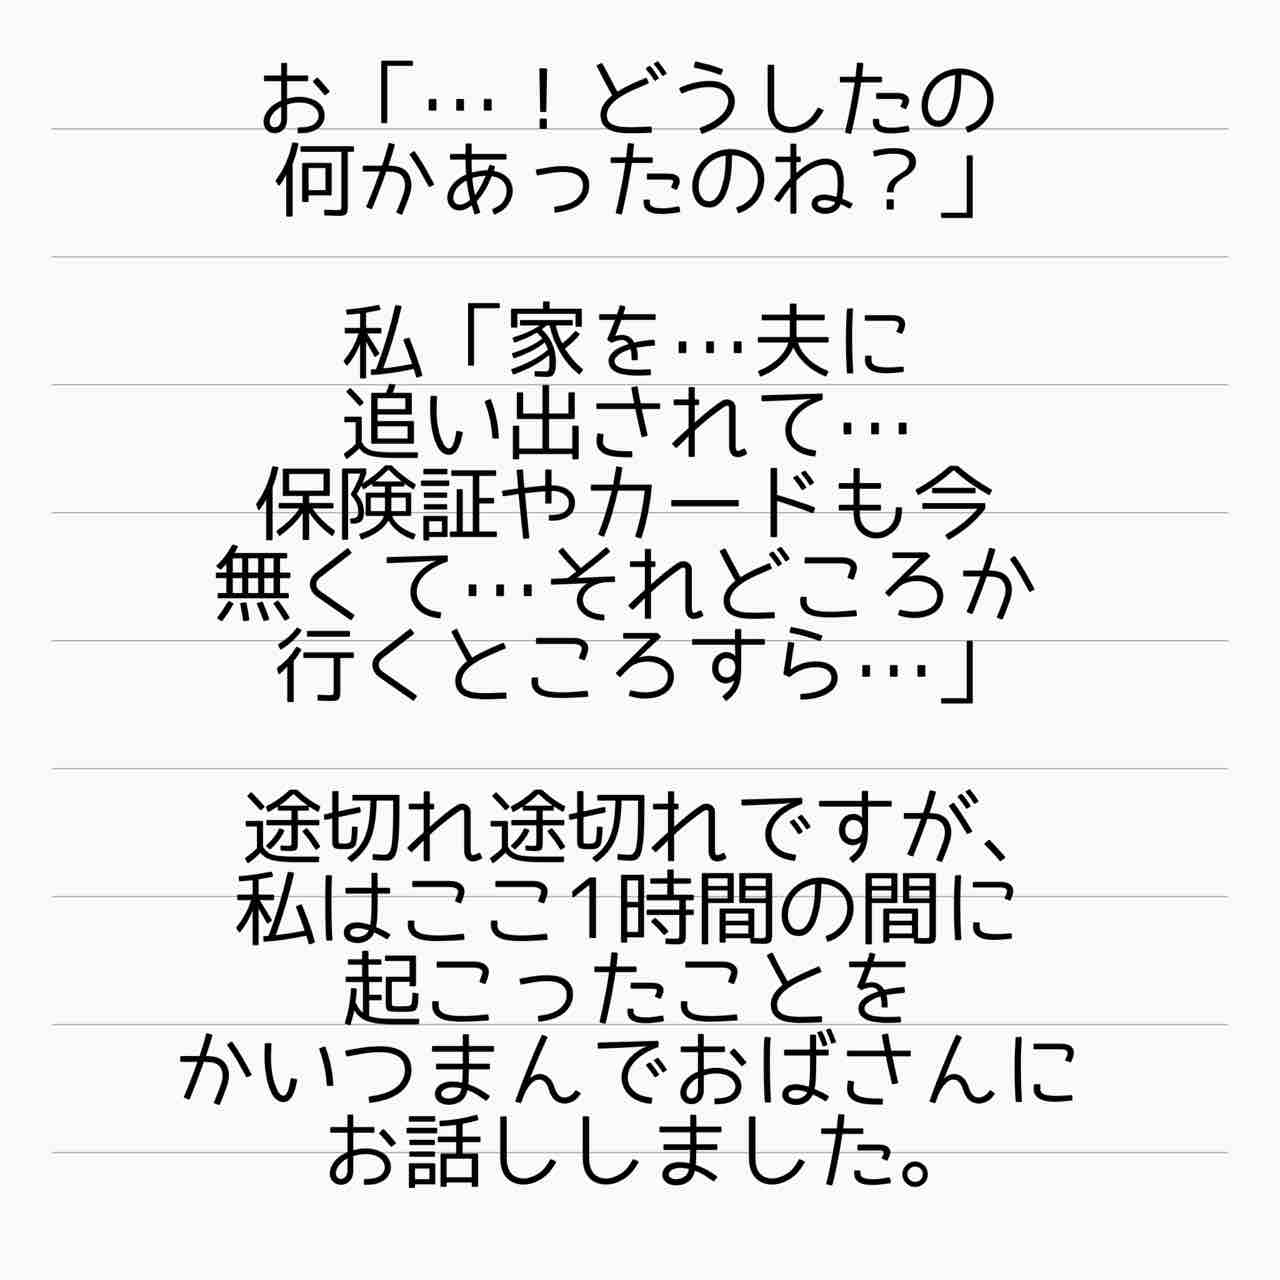 お「…！どうしたの
何かあったのね？」
私「家を…夫に
追い出されて…
保険証やカードも今
無くて…それどころか
行くところすら…」
途切れ途切れですが、
私はここ1時間の間に
起こったことを
かいつまんでおばさんに
お話ししました。